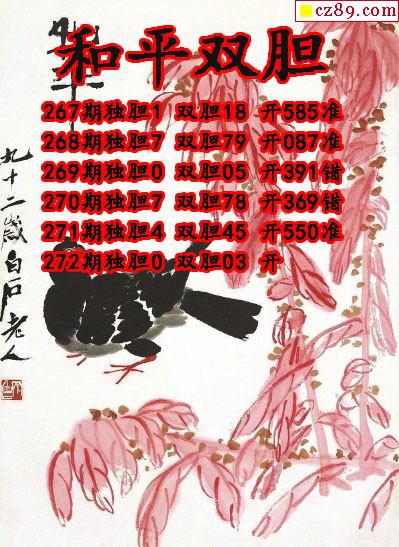 cz89.com
和平双胆
267期独胆1 双胆18 开585准
268期独胆7 双胆79 开087准
269期独胆0 双胆05 开391错
270期独胆7 双胆78 开369错
271期独胆4 双胆45 开550准
272期独胆0 双胆03 开
九十二岁白石老人